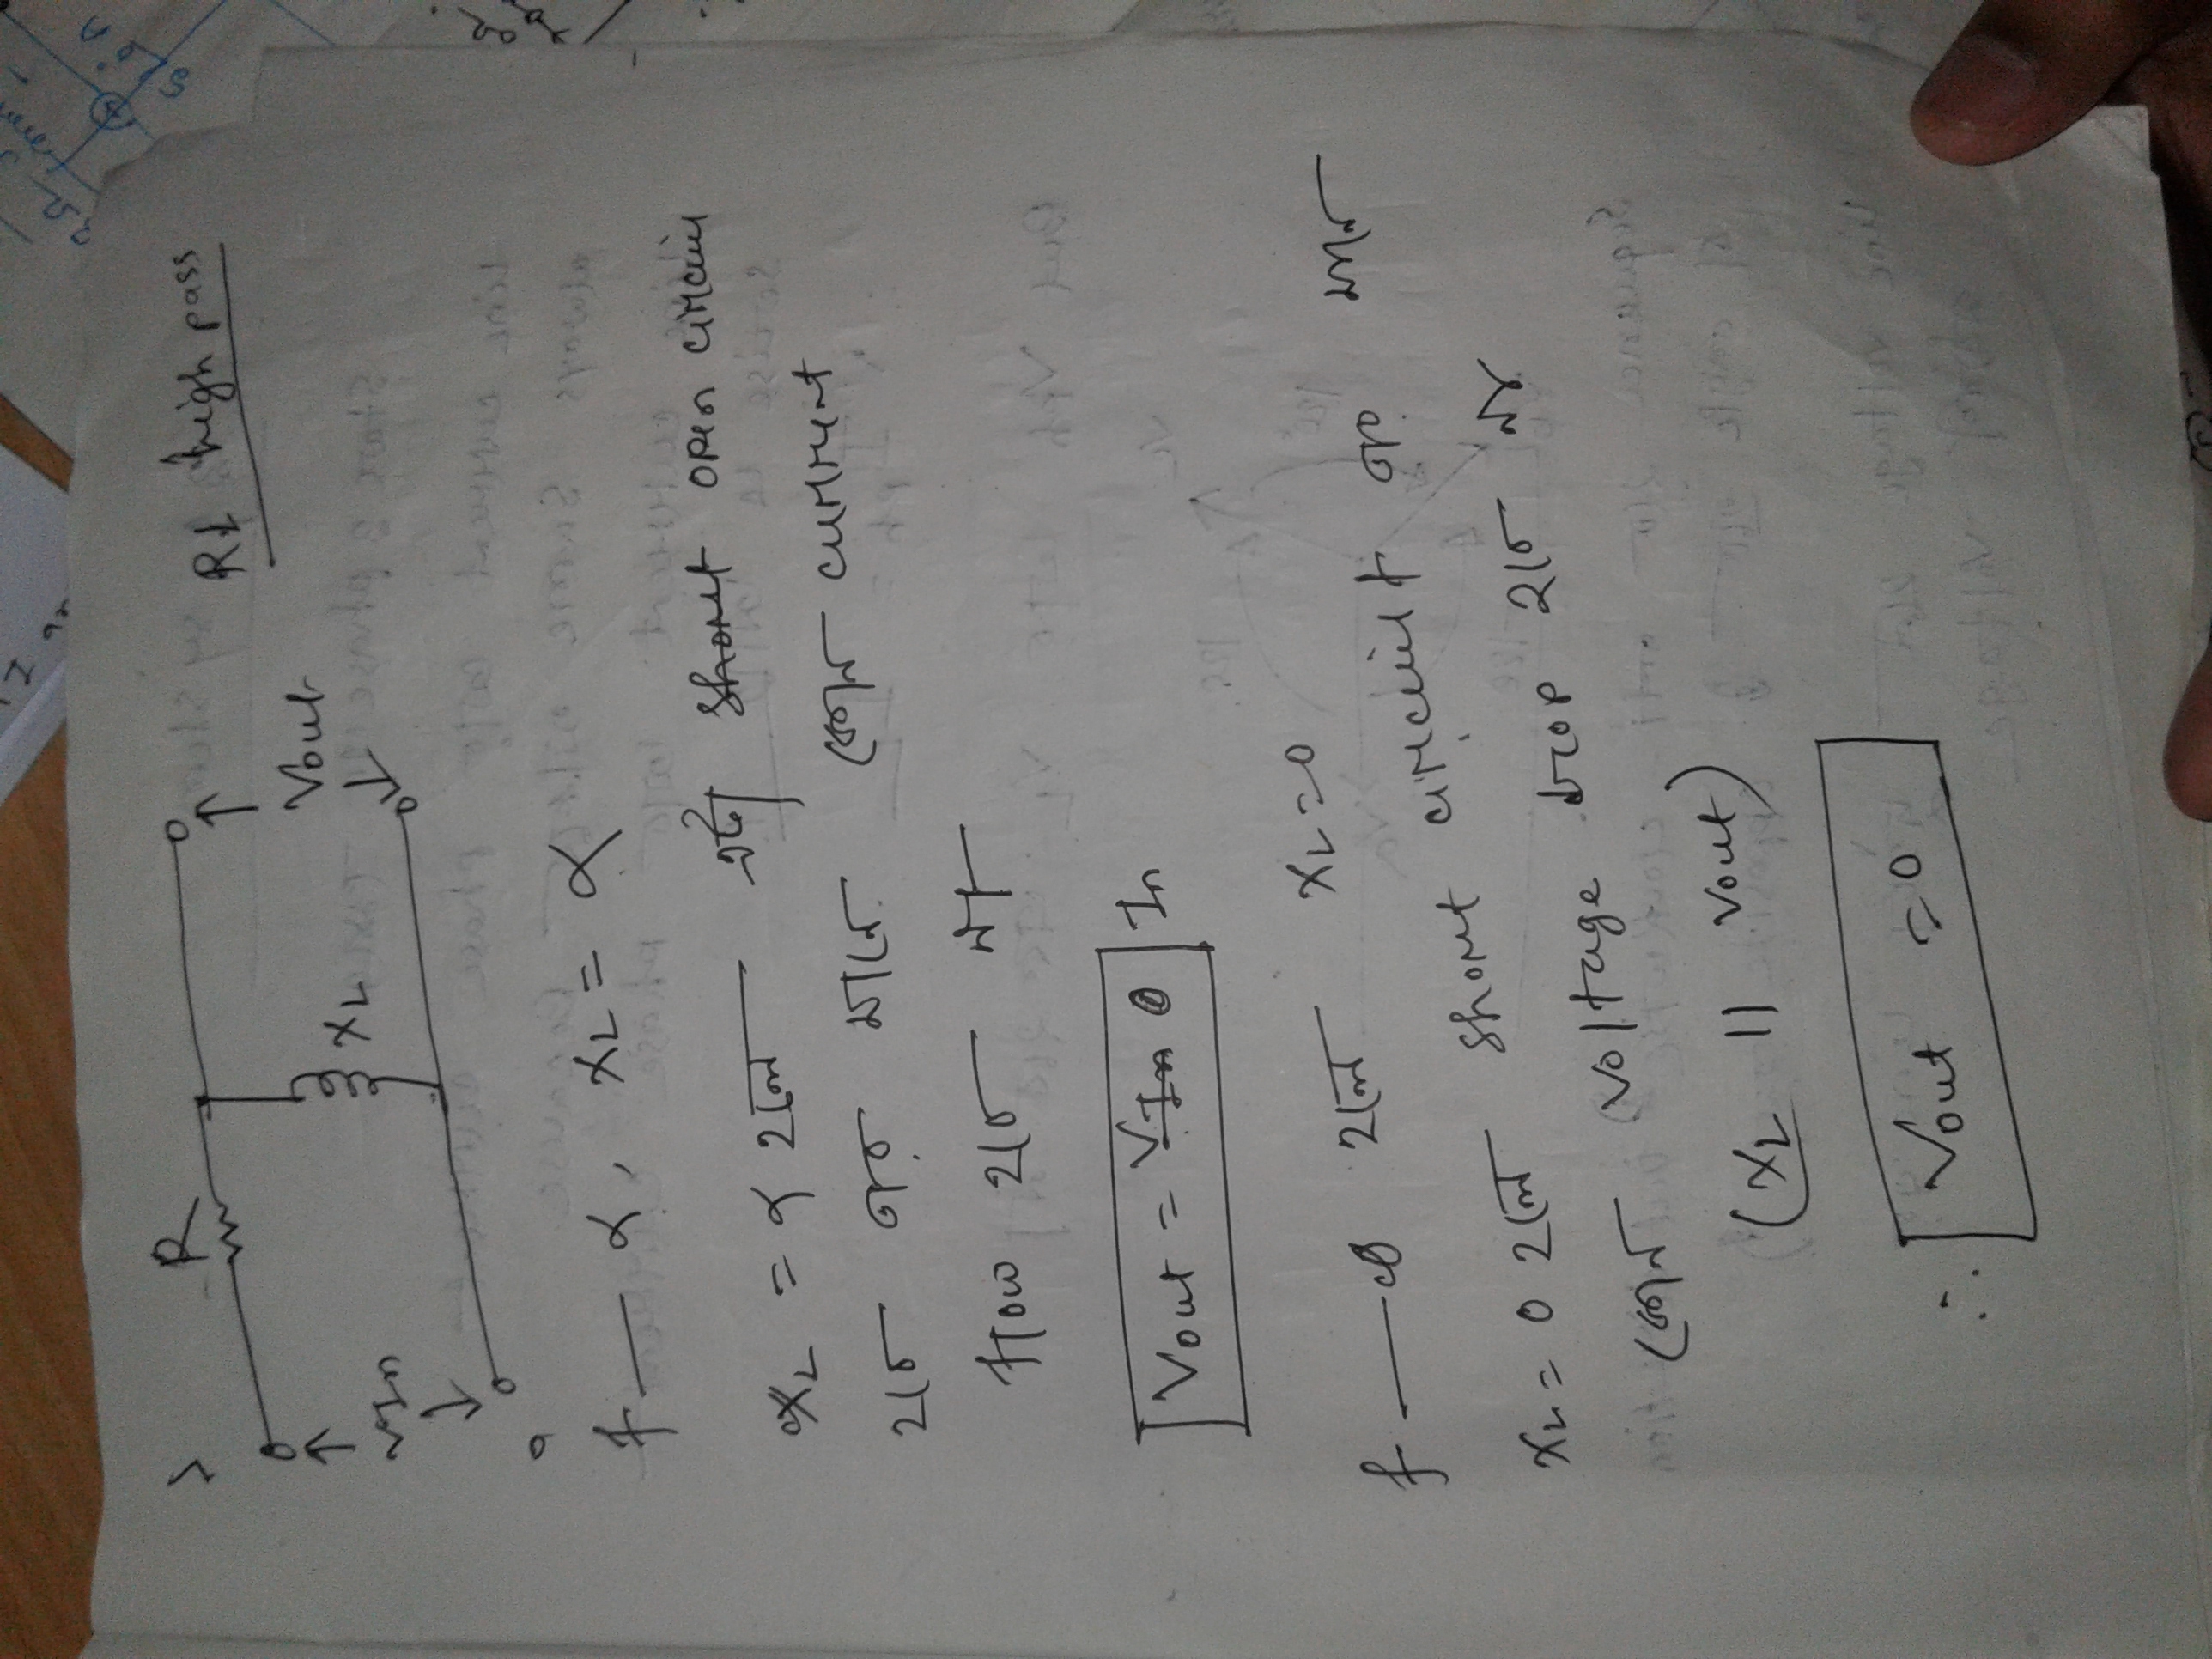 R
RL high pass
VIn
XL
Vout
f — α, XL = α
XL = α হলে এটা short open circuit
হবে তার মানে কোন current
flow হবে না
Vout = VIn 0 In
f — 0 হলে XL = 0
XL = 0 হলে short circuit তার মানে
কোন voltage drop হবে না
(XL || Vout)
∴ Vout = 0